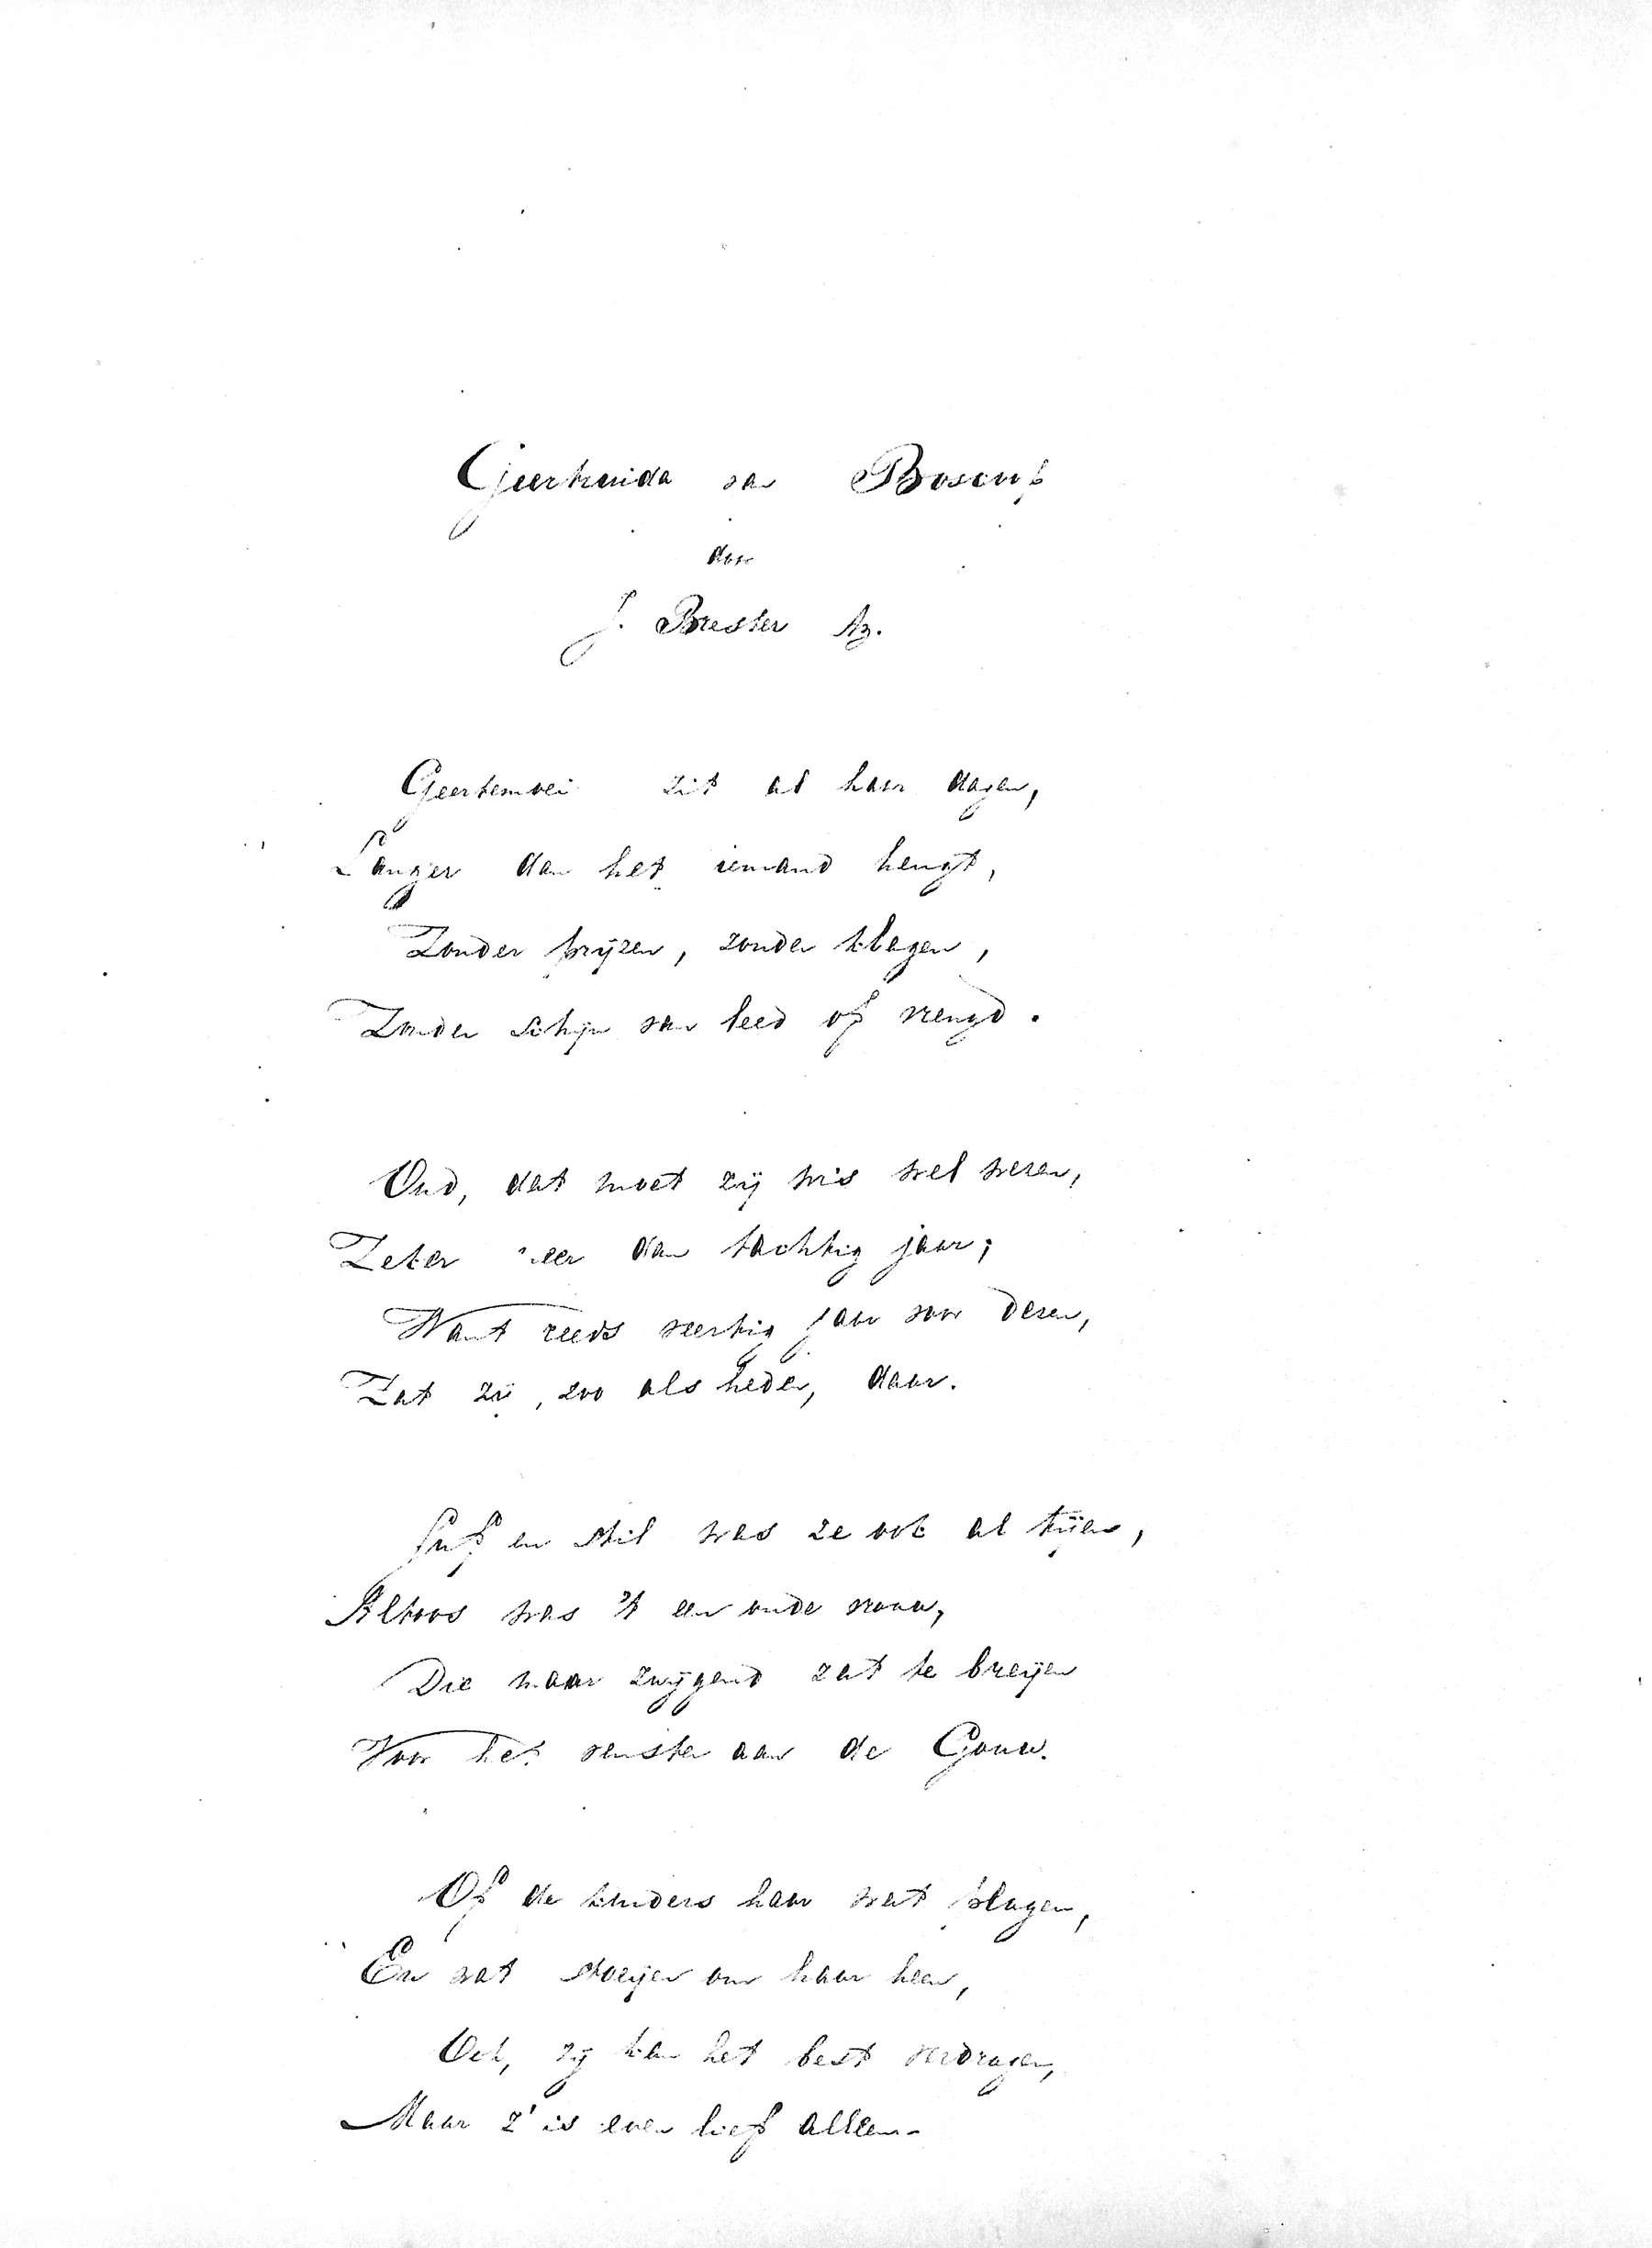 Geertruida van Boscuf
door
J. Brester Az.
Geertemoei zit al haar dagen,
Langer dan het iemand heugt,
Zonder prijzen, zonder klagen,
Zonder schijn van leed of vreugd.
Oud, dat moet zij wis wel wezen,
Zeker meer dan tachtig jaar;
Want reeds veertig jaar voor dezen,
Zat zij, zoo als heden, daar.
Suf en stil was ze ook al tijen,
Altoos was 't een oude vrouw,
Die maar zwijgend zat te breijen
Voor het venster aan de Gouw.
Of de kinders haar wat plagen,
En wat stoeijen om haar heen,
Och, zij kan het best verdragen,
Maar z' is even lief alleen.